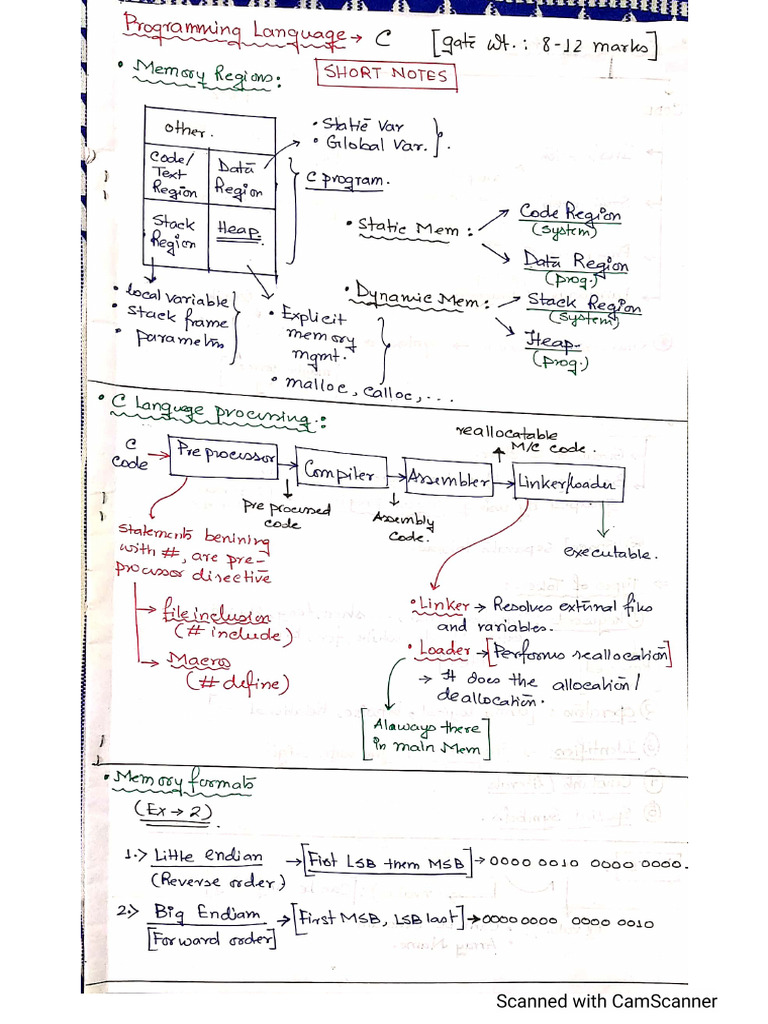 Programming Language → C [gate wt. : 8-12 marks]
• Memory Regions:
SHORT NOTES
other.
Code/
Text
Region
Data
Region
Stack
Region
Heap.
• Static Var
• Global Var.
C program.
• Static Mem :
Code Region
(system)
Data Region
(prog.)
• Dynamic Mem :
Stack Region
(system)
Heap.
(prog.)
• local variable
• stack frame
• parameters
• Explicit
memory
mgmt.
• malloc, calloc, ...
• C Language processing.:
C
code
Pre processor
Compiler
Assembler
Linker/loader
reallocatable
M/C code.
Pre processed
code
Assembly
code.
executable.
Statements benining
with #, are pre-
processor directive
→ file inclusion
(# include)
→ Macros
(# define)
• Linker → Resolves external files
and variables.
• Loader → [Performs reallocation]
→ It does the allocation/
deallocation.
[Alaways there
in main Mem]
• Memory formats
(Ex → 2)
1.> Little endian → [Fist LSB them MSB] → 0000 0010 0000 0000.
(Reverse order)
2.> Big Endiam → [First MSB, LSB last] → 0000 0000 0000 0010
[Forward order]
Scanned with CamScanner